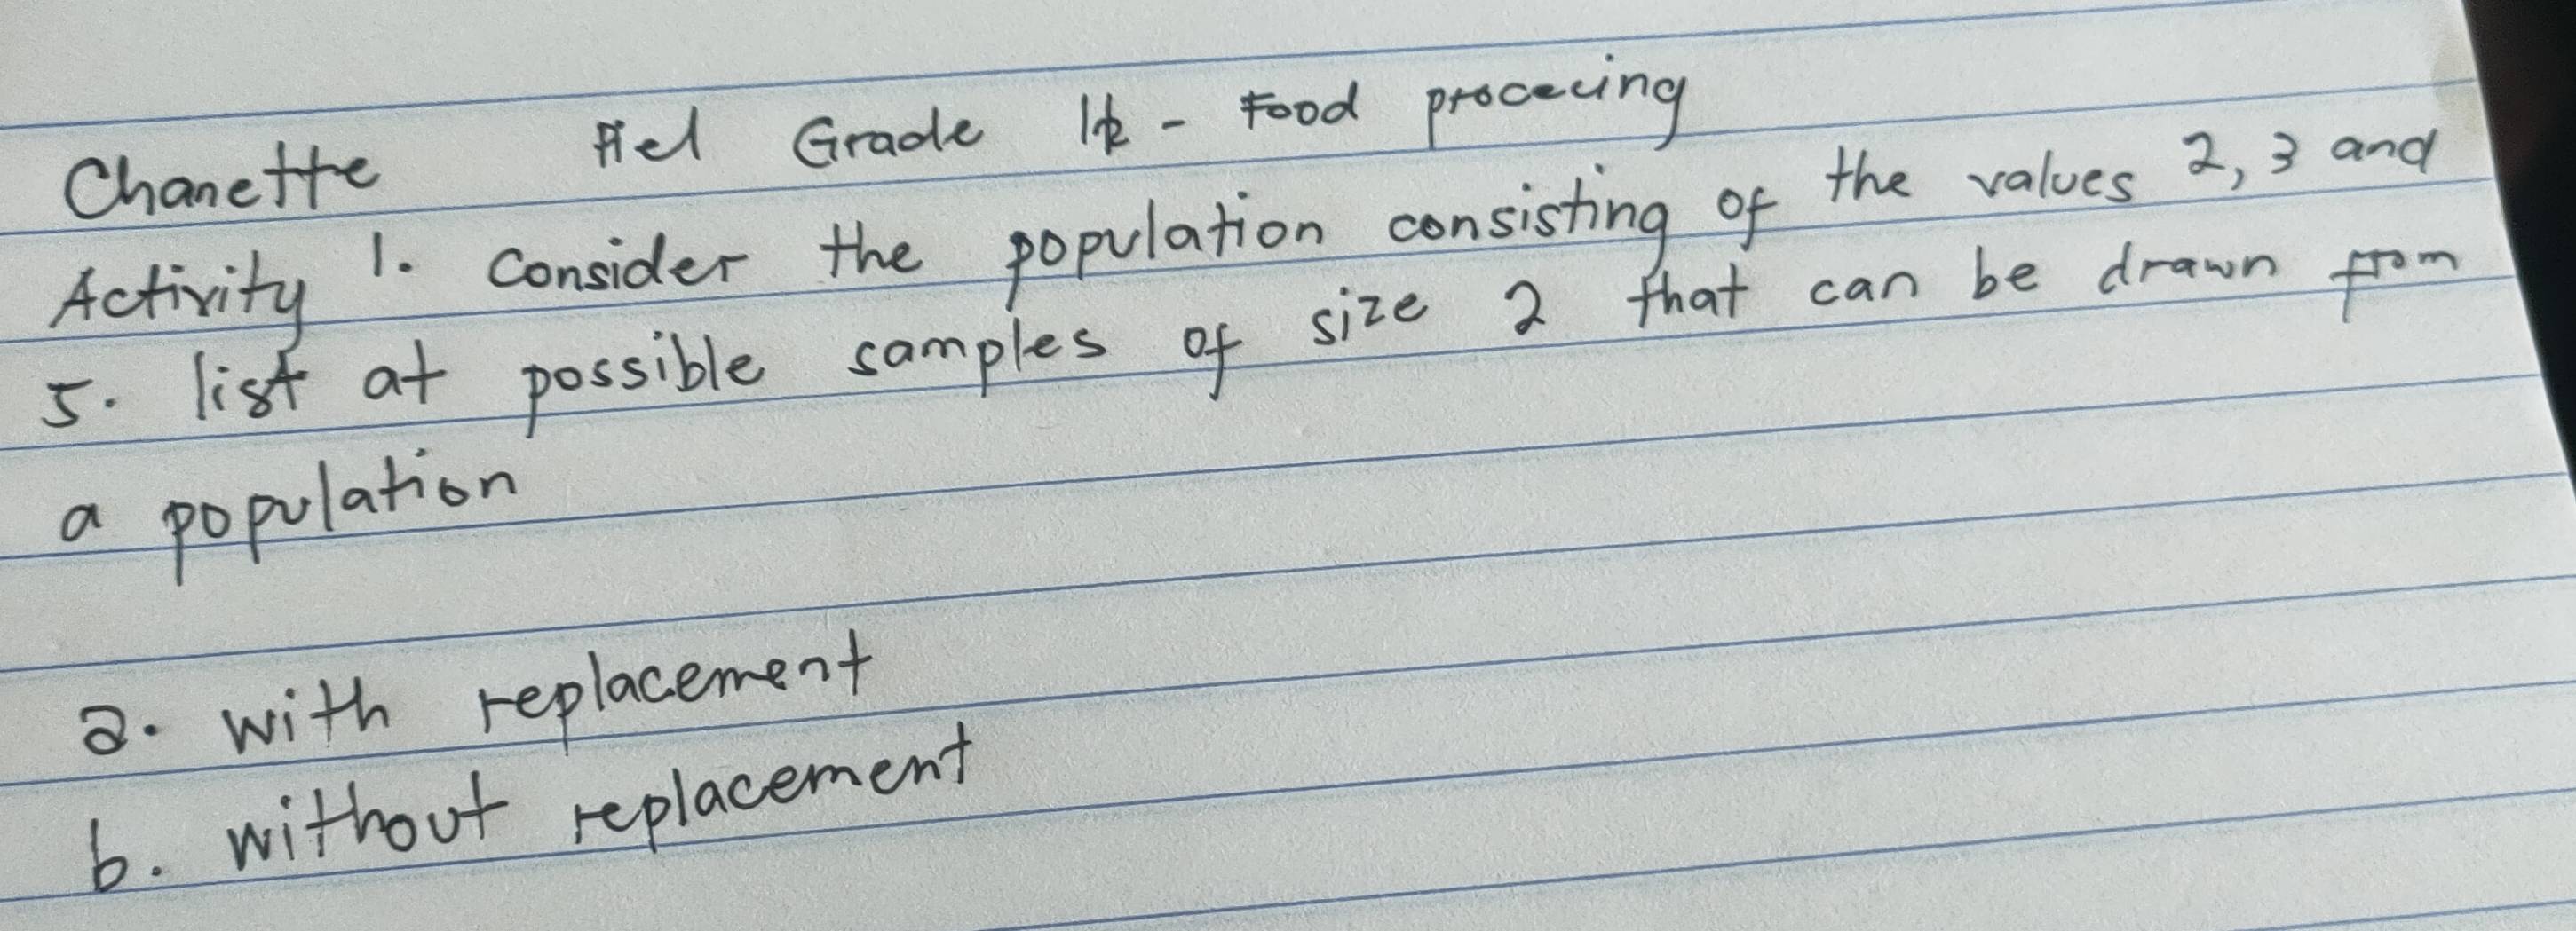 Chanette Fiel Grade 12 - Food procecing
Activity 1. Consider the population consisting of the values 2, 3 and
5. list at possible samples of size 2 that can be drawn from
a population
a. with replacement
b. without replacement